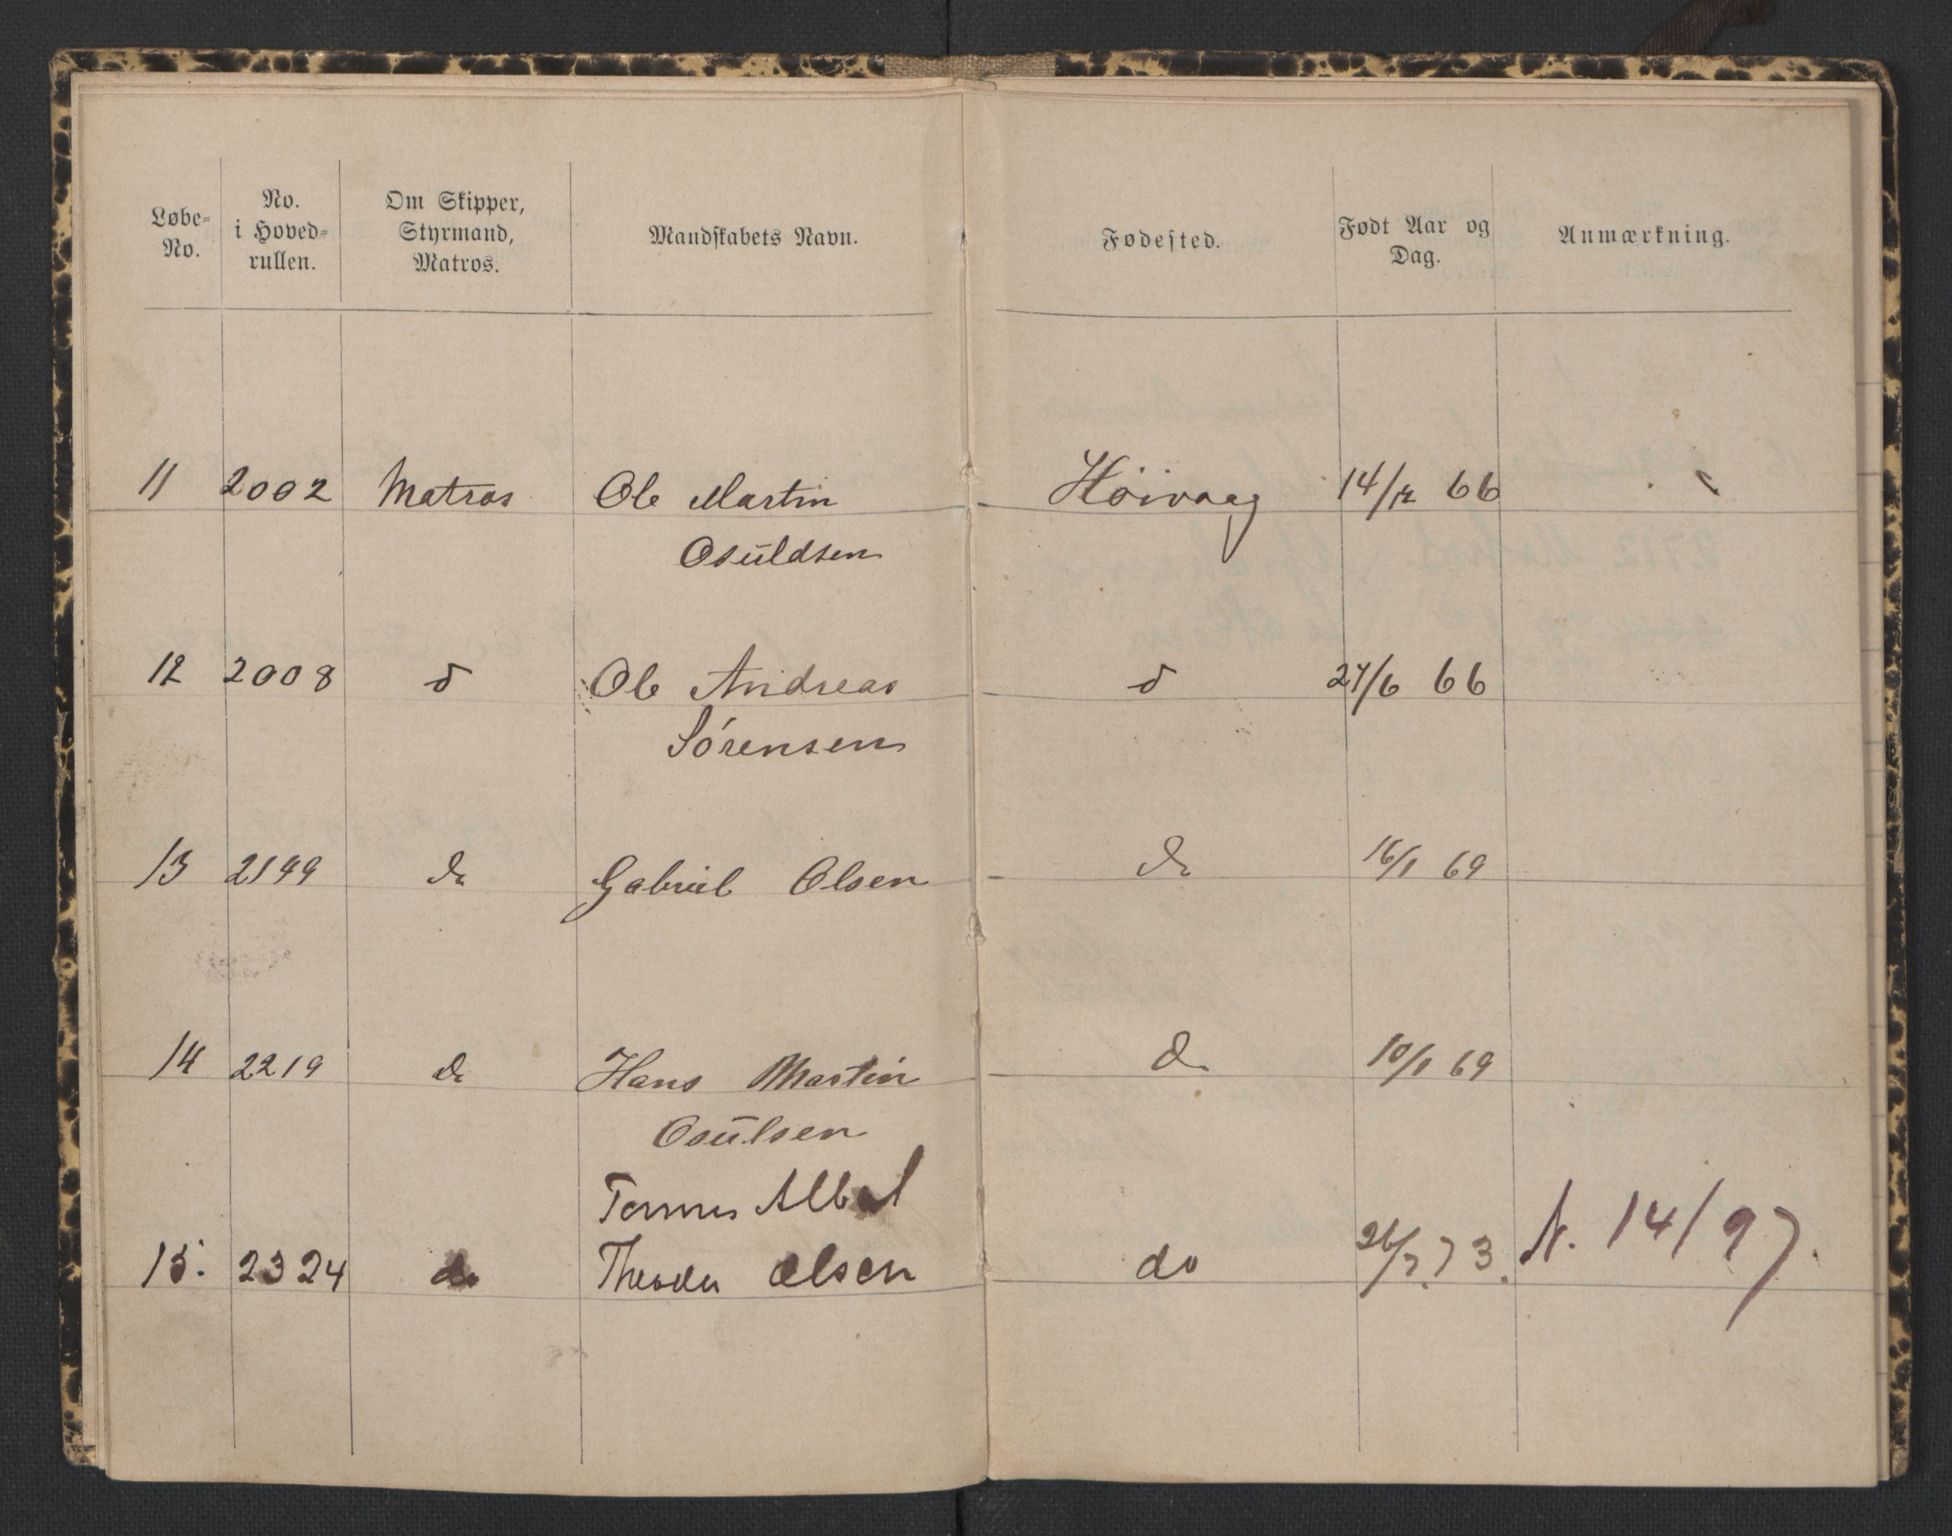 Løbe-No. No. i Hoved-rullen. Om Skipper, Styrmand, Matros. Mandskabets Navn. Fødested. Født Aar og Dag. Anmærkning.
11 2002 Matros Ole Martin Høivaag 14/12 66
Osuldsen
12 2008 do Ole Andreas do 27/6 66
Sørensen
13 2199 do Gabriel Olsen do 16/1 69
14 2219 do Hans Martin do 10/1 69
Osulsen
Tønnes
15. 2324 do Theodor Olsen do 26/7.73. N. 14/97.